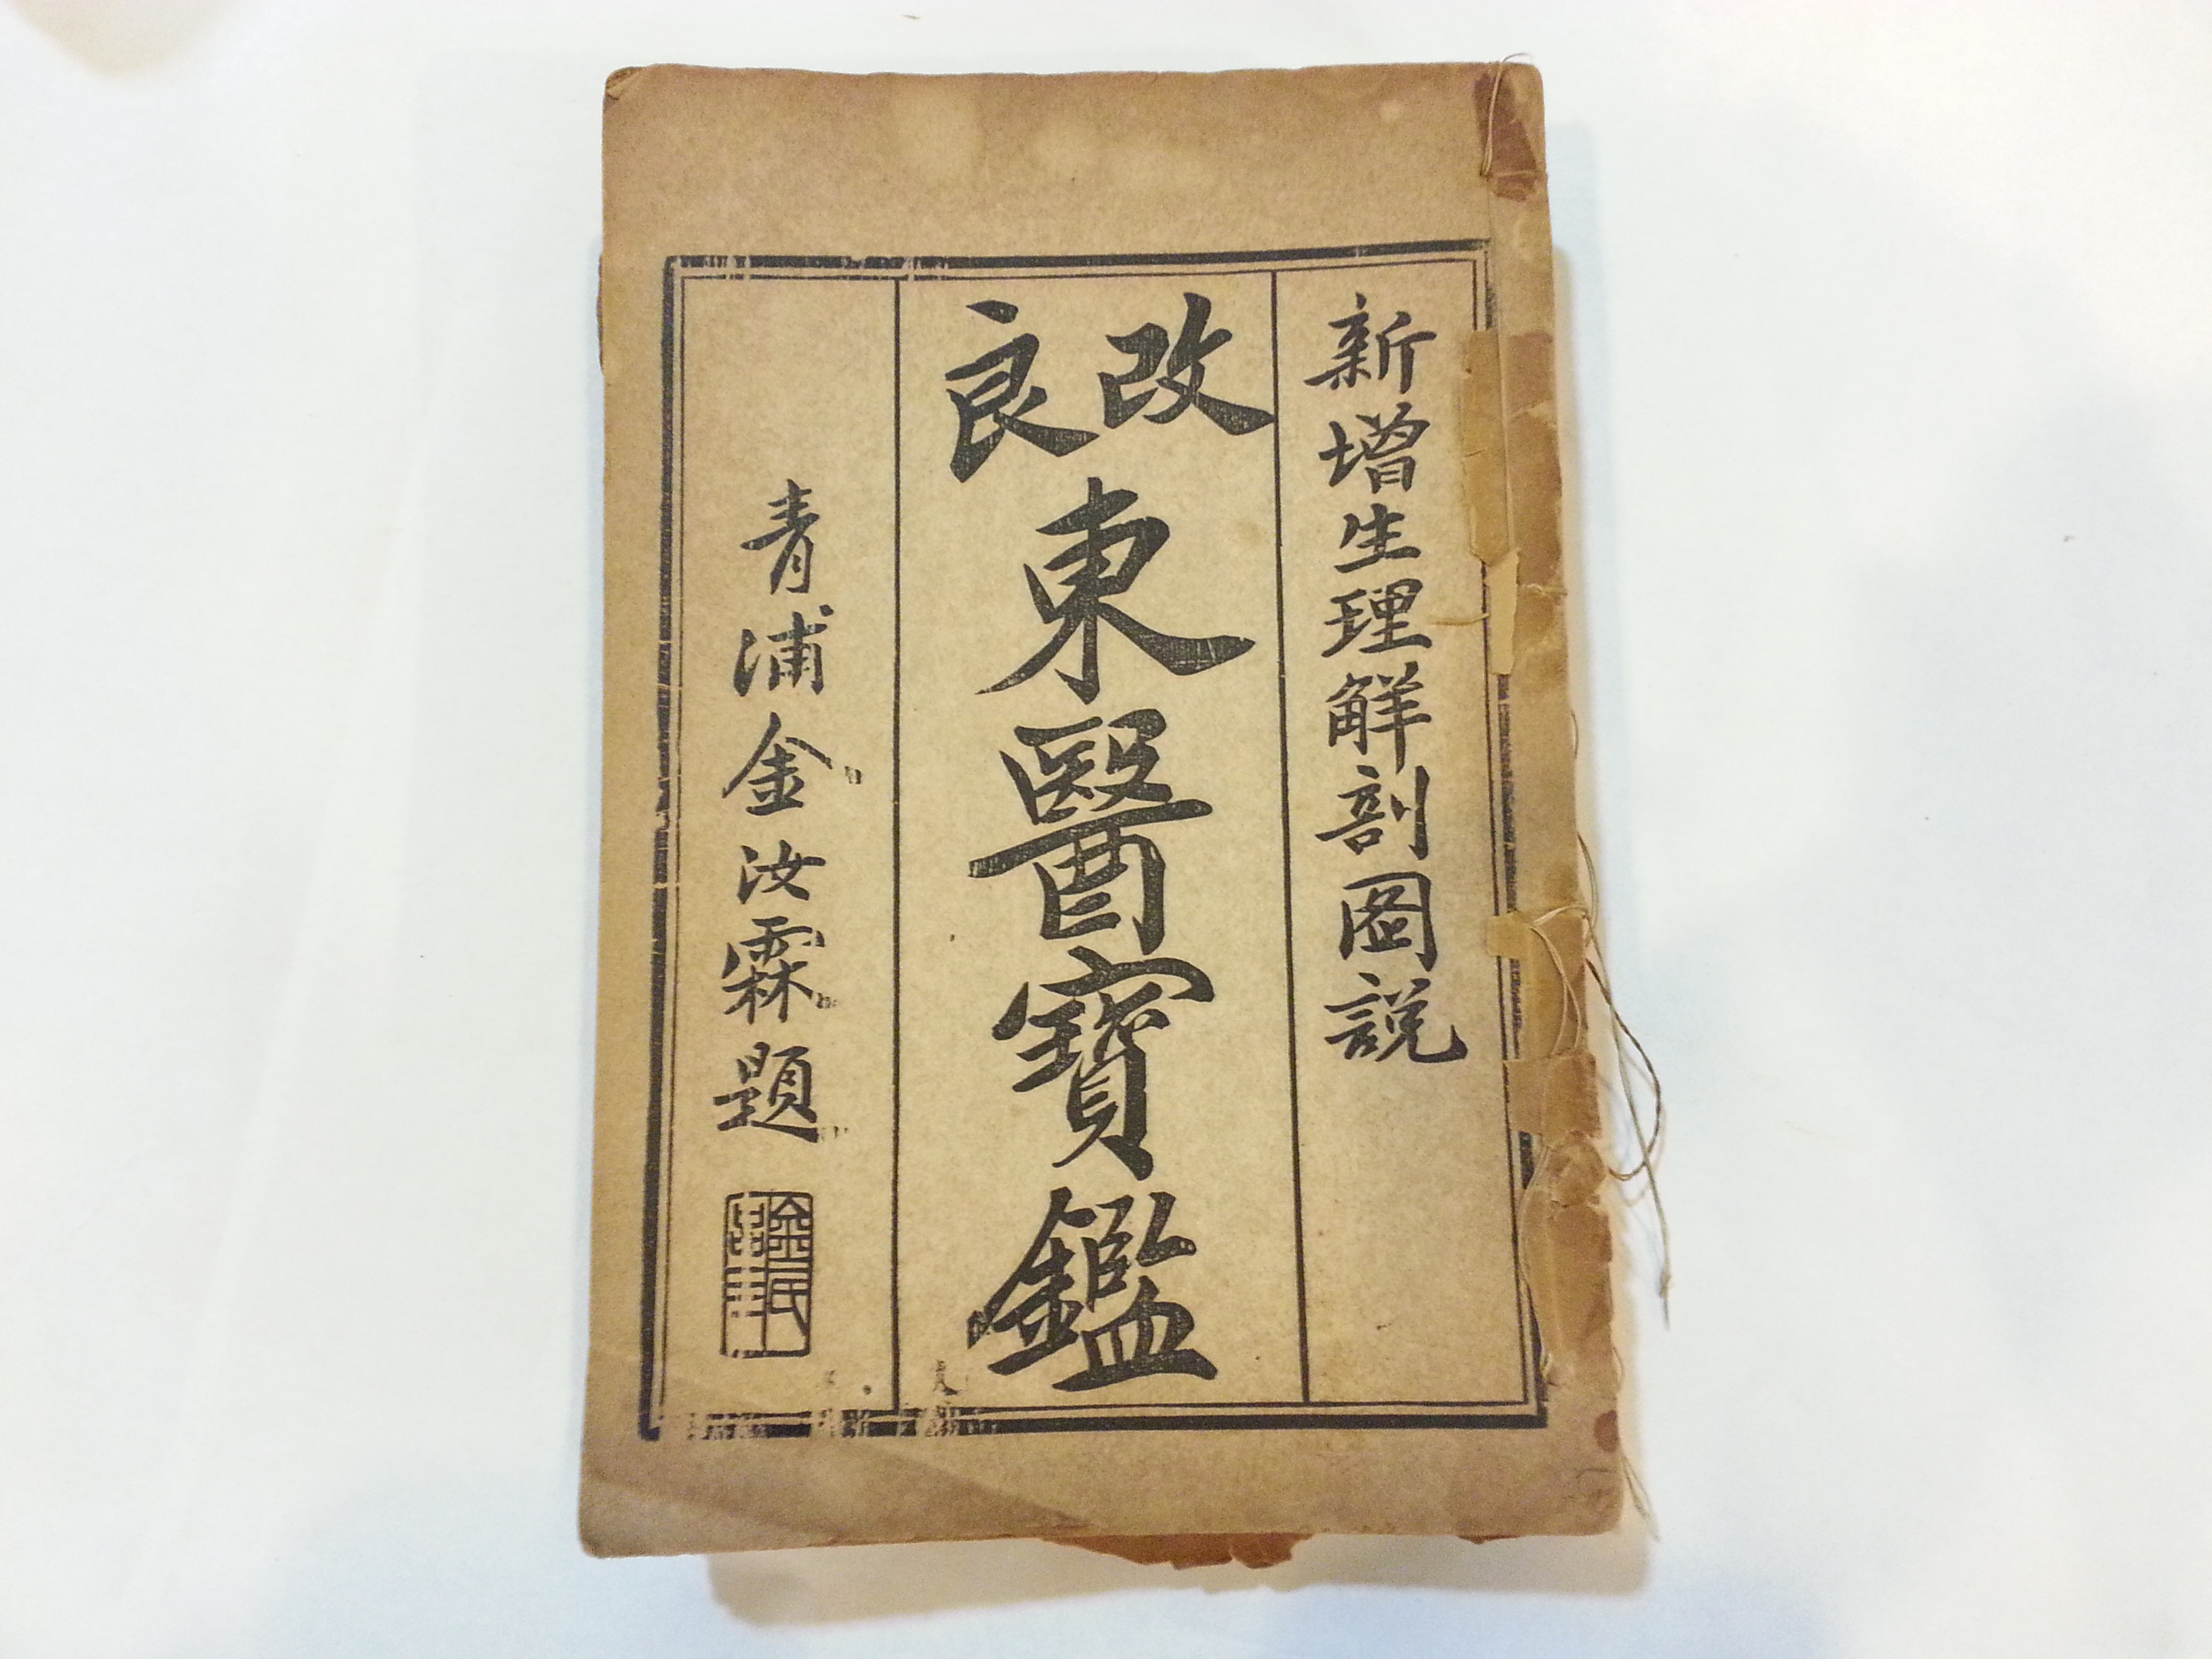 新增生理解剖圖說
改良
東醫寶鑑
青浦金汝霖題